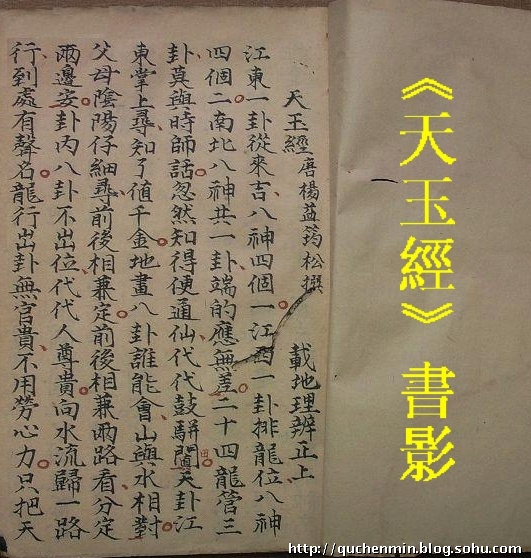 《天玉經》書影
天玉經 唐楊益筠松撰 載地理辨正上
江東一卦從來吉八神四個一江西一卦排龍位八神
四個二南北八神共一卦端的應無差二十四龍管三
卦莫與時師話忽然知得便通仙代代鼓駢闐天卦江
東掌上尋知了值千金地畫八卦誰能會山與水相對
父母陰陽仔細尋前後相兼定前後相兼兩路看分定
兩邊安卦內八卦不出位代代人尊貴向水流歸一路
行到處有聲名龍行出卦無官貴不用勞心力只把天
http://quchenmin.blog.sohu.com